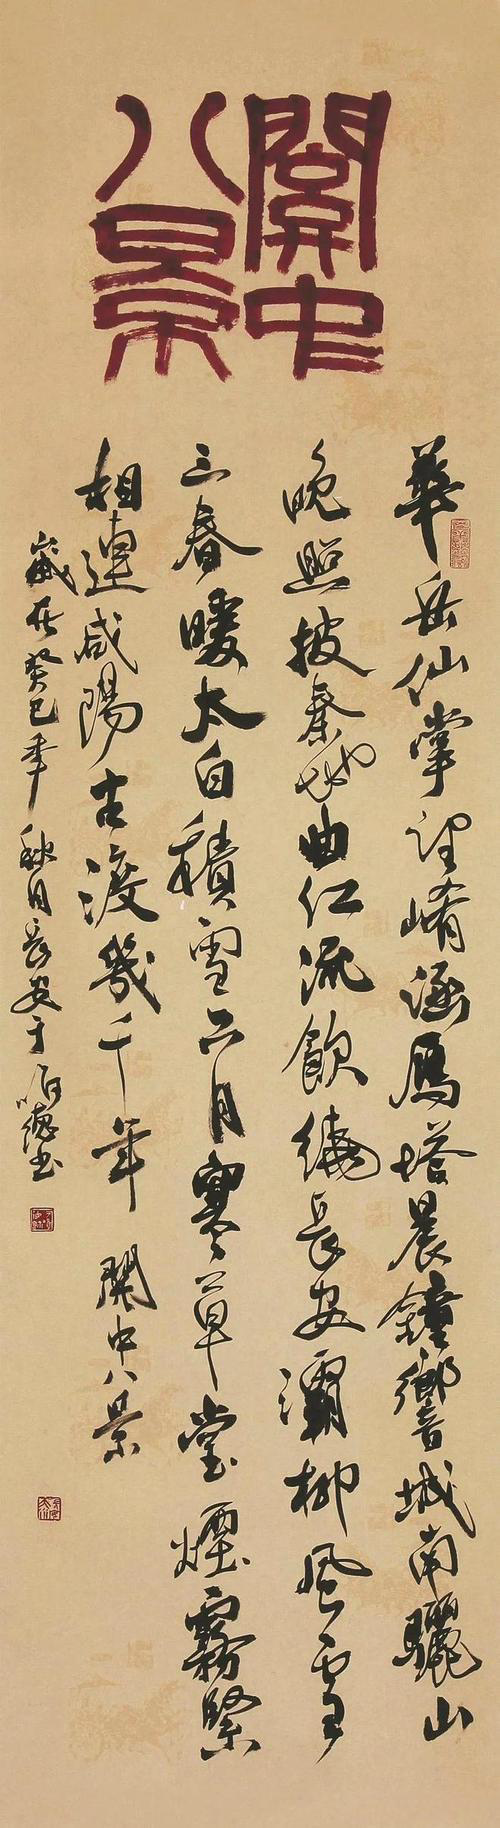 關中
八景
華岳仙掌望崤函雁塔晨鐘響城南驪山
晚照披秦地曲江流飲繞長安灞柳風雪
三春暖太白積雪六月寒草堂煙霧緊
相連咸陽古渡幾千年 關中八景
歲在癸巳年秋月長安于德书